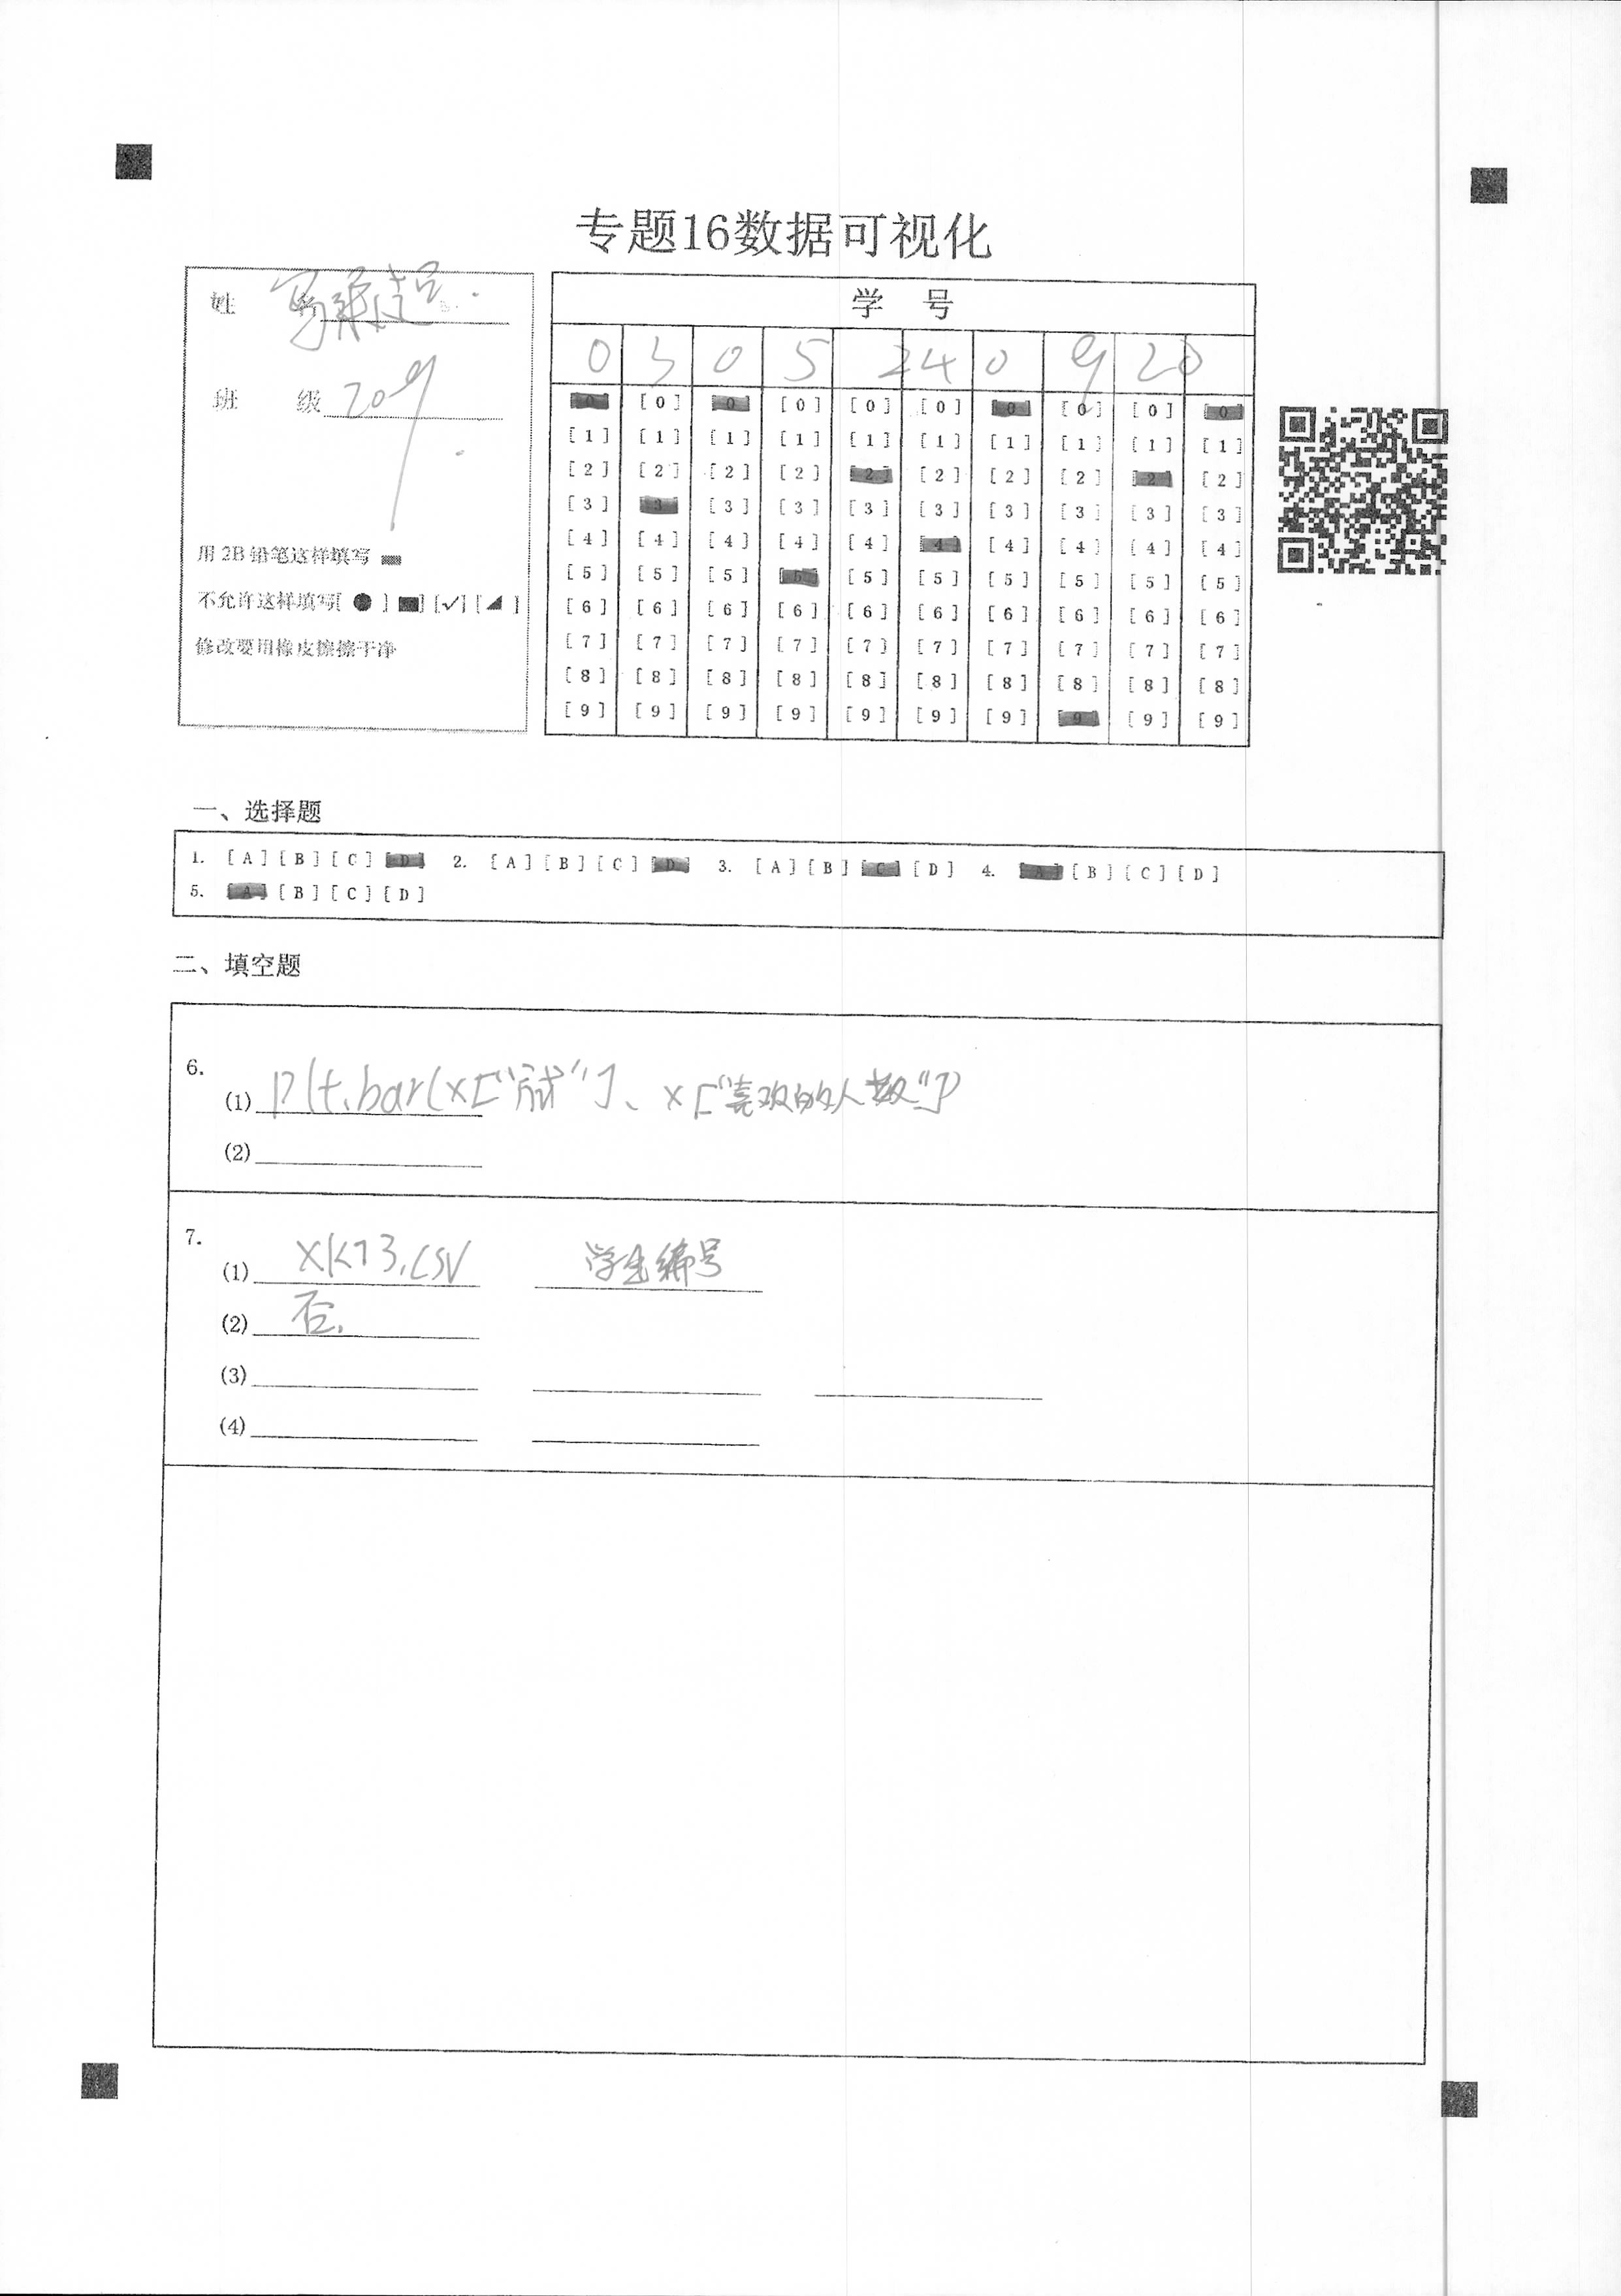 专题16数据可视化
姓 名
班 级 209
用 2B 铅笔这样填写
不允许这样填写[ ● ] [■] [✓] [◢ ]
修改要用橡皮擦擦干净
学 号
0 3 0 5 2 4 0 9 2 0
[0] [0] [0] [0] [0] [0] [0] [0] [0] [0]
[1] [1] [1] [1] [1] [1] [1] [1] [1] [1]
[2] [2] [2] [2] [2] [2] [2] [2] [2] [2]
[3] [3] [3] [3] [3] [3] [3] [3] [3] [3]
[4] [4] [4] [4] [4] [4] [4] [4] [4] [4]
[5] [5] [5] [5] [5] [5] [5] [5] [5] [5]
[6] [6] [6] [6] [6] [6] [6] [6] [6] [6]
[7] [7] [7] [7] [7] [7] [7] [7] [7] [7]
[8] [8] [8] [8] [8] [8] [8] [8] [8] [8]
[9] [9] [9] [9] [9] [9] [9] [9] [9] [9]
一、选择题
1. [A] [B] [C] [D] 2. [A] [B] [C] [D] 3. [A] [B] [C] [D] 4. [A] [B] [C] [D]
5. [A] [B] [C] [D]
二、填空题
6.
(1) plt.bar(x[" "]、x["喜欢的人数"])
(2)
7.
(1) xk73.csv 学生编号
(2) 否.
(3)
(4)